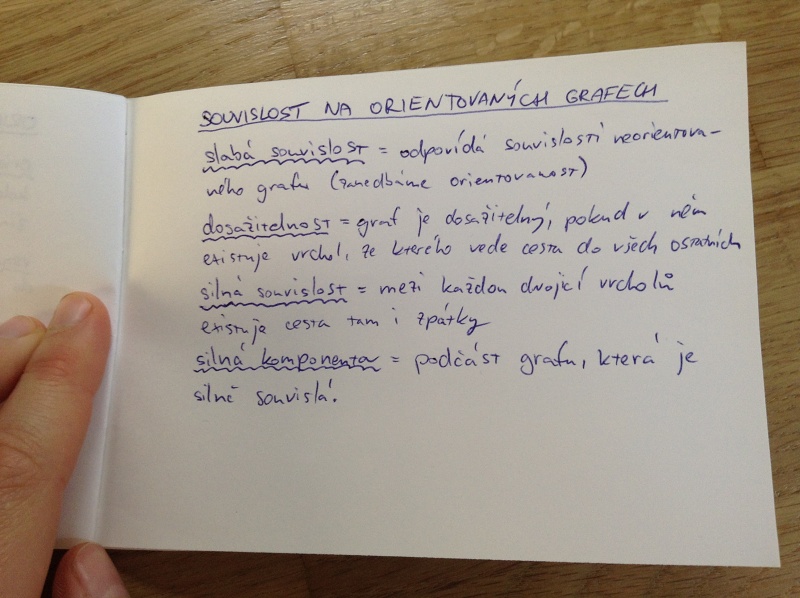 SOUVISLOST NA ORIENTOVANÝCH GRAFECH
slabá souvislost = odpovídá souvislosti neorientova-
ného grafu (zanedbáme orientovanost)
dosažitelnost = graf je dosažitelný, pokud v něm
existuje vrchol, ze kterého vede cesta do všech ostatních
silná souvislost = mezi každou dvojicí vrcholů
existuje cesta tam i zpátky
silná komponenta = podčást grafu, která je
silně souvislá.